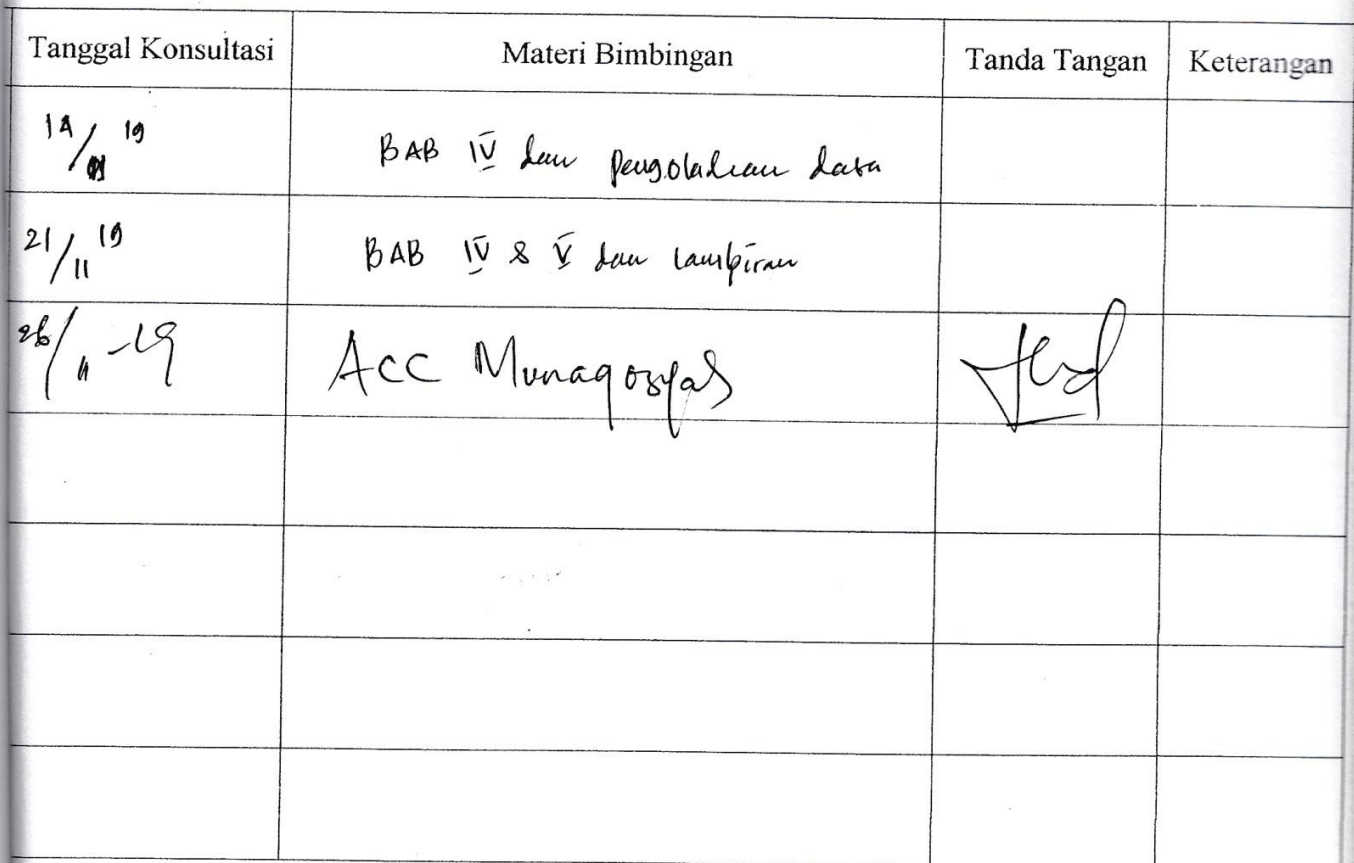 Tanggal Konsultasi Materi Bimbingan Tanda Tangan Keterangan
14/ 19 BAB IV dan pengolahan data
21/11 19 BAB IV & V dan lampiran
26/11 -19 Acc Munaqosyah